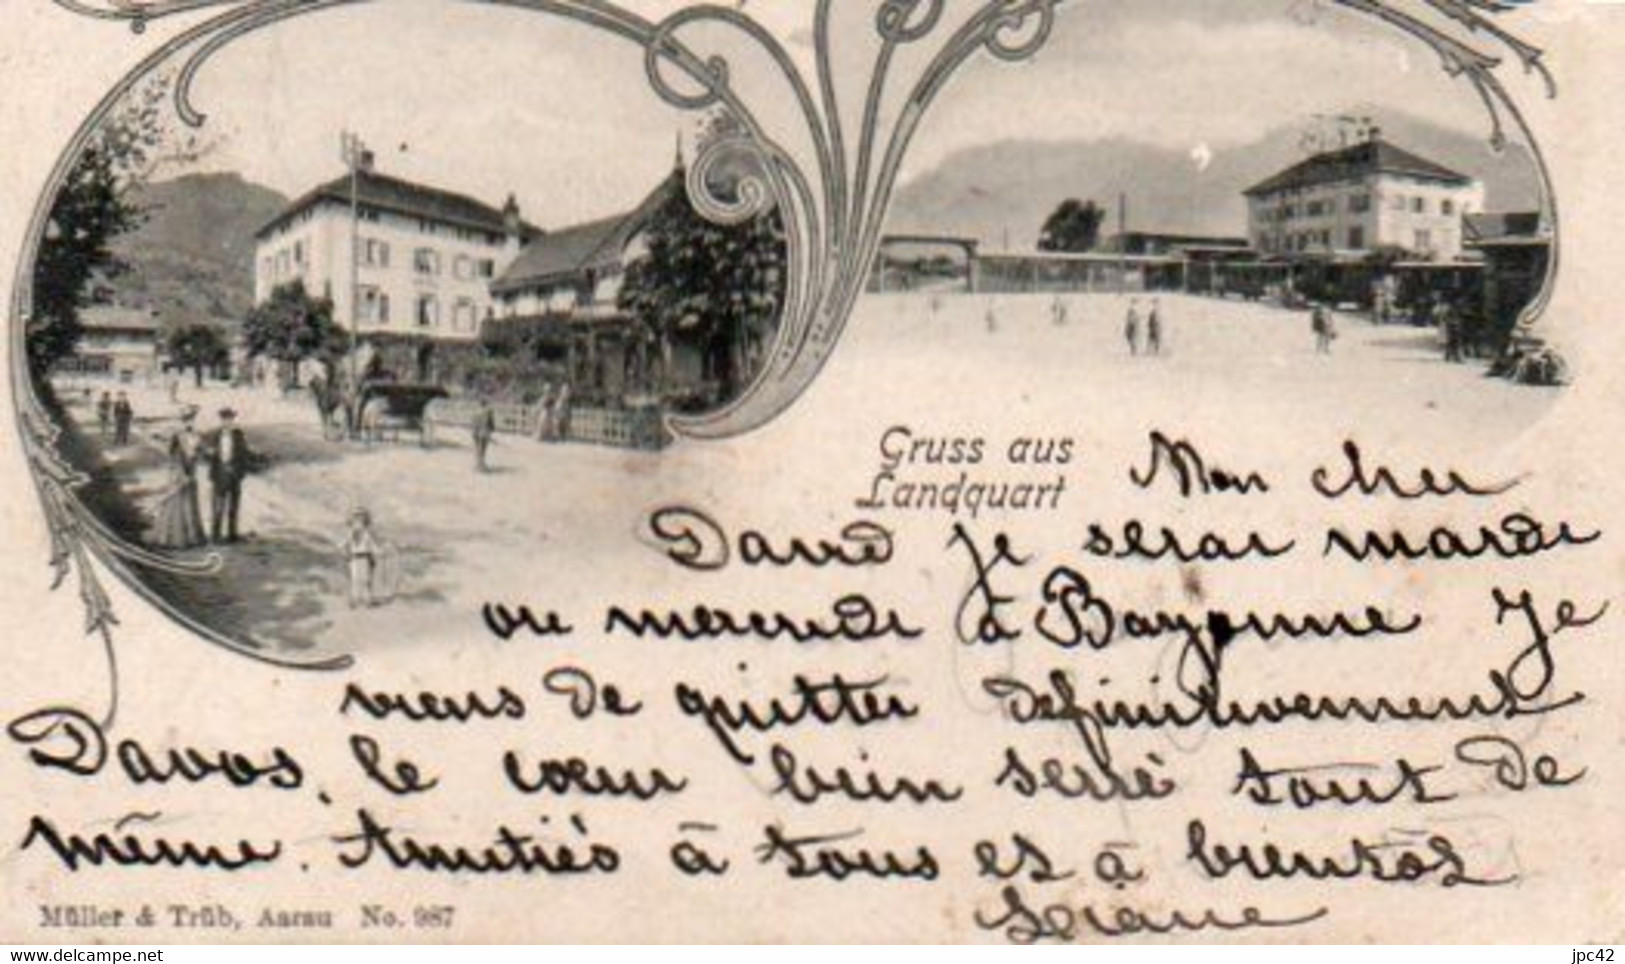 Gruss aus
Landquart
Mon cher
David je serai mardi
ou mercredi à Bayonne Je
viens de quitter definitivement
Davos, le cœur bien serré tout de
même. Amitiés à tous et à bientôt
Müller & Trüb, Aarau No. 987
delcampe.net
jpc42